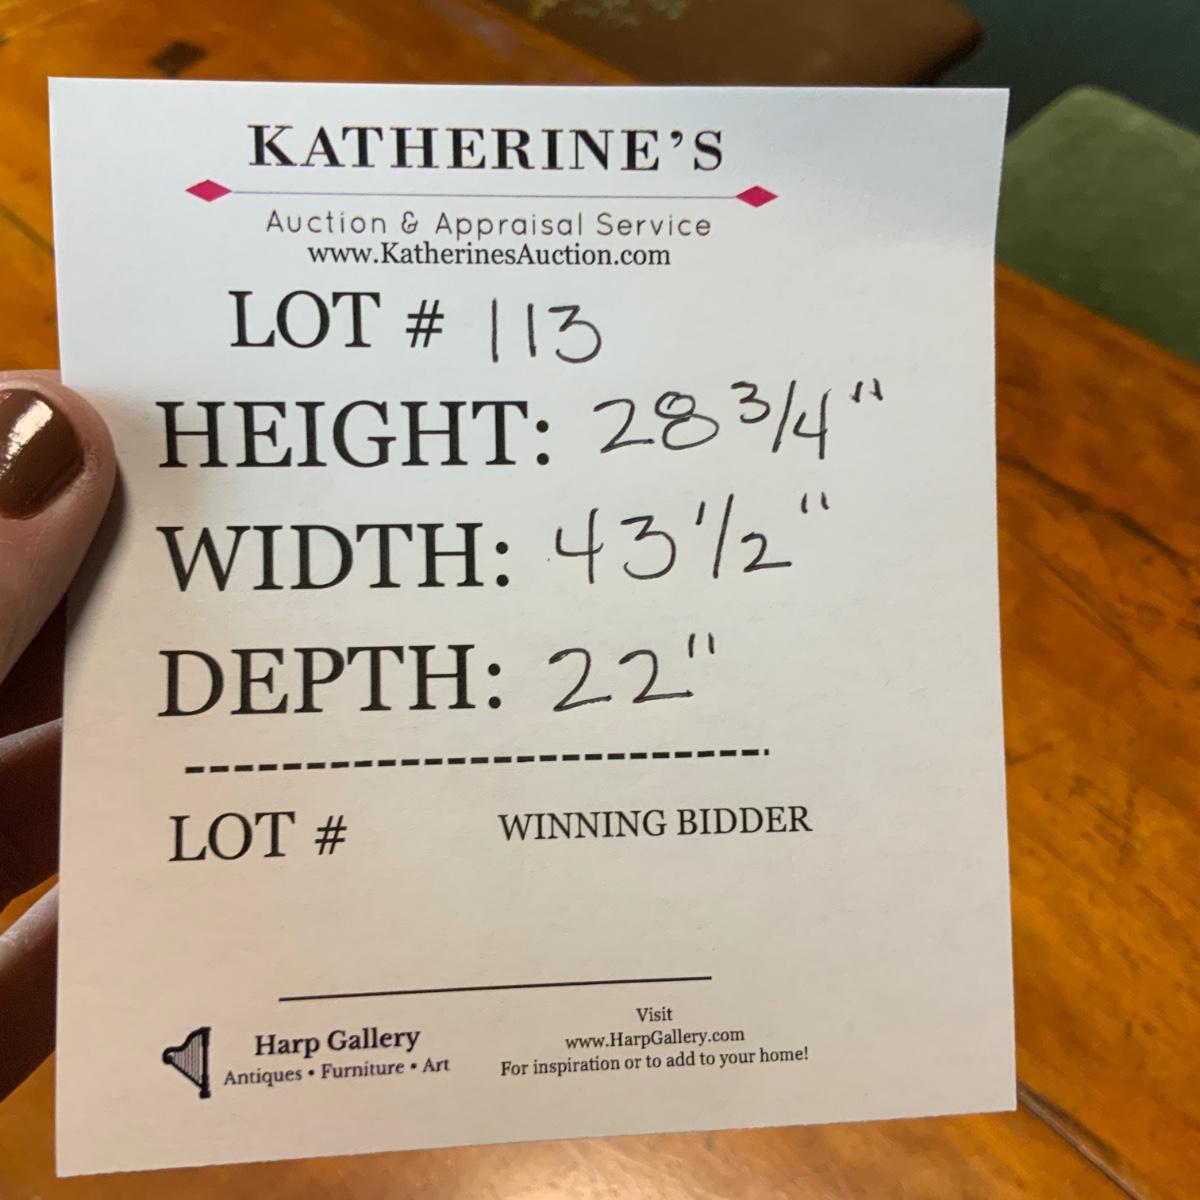 KATHERINE'S
Auction & Appraisal Service
www.KatherinesAuction.com
LOT # 113
HEIGHT: 28 3/4"
WIDTH: 43 1/2"
DEPTH: 22"
LOT # WINNING BIDDER
Harp Gallery
Antiques • Furniture • Art
Visit
www.HarpGallery.com
For inspiration or to add to your home!